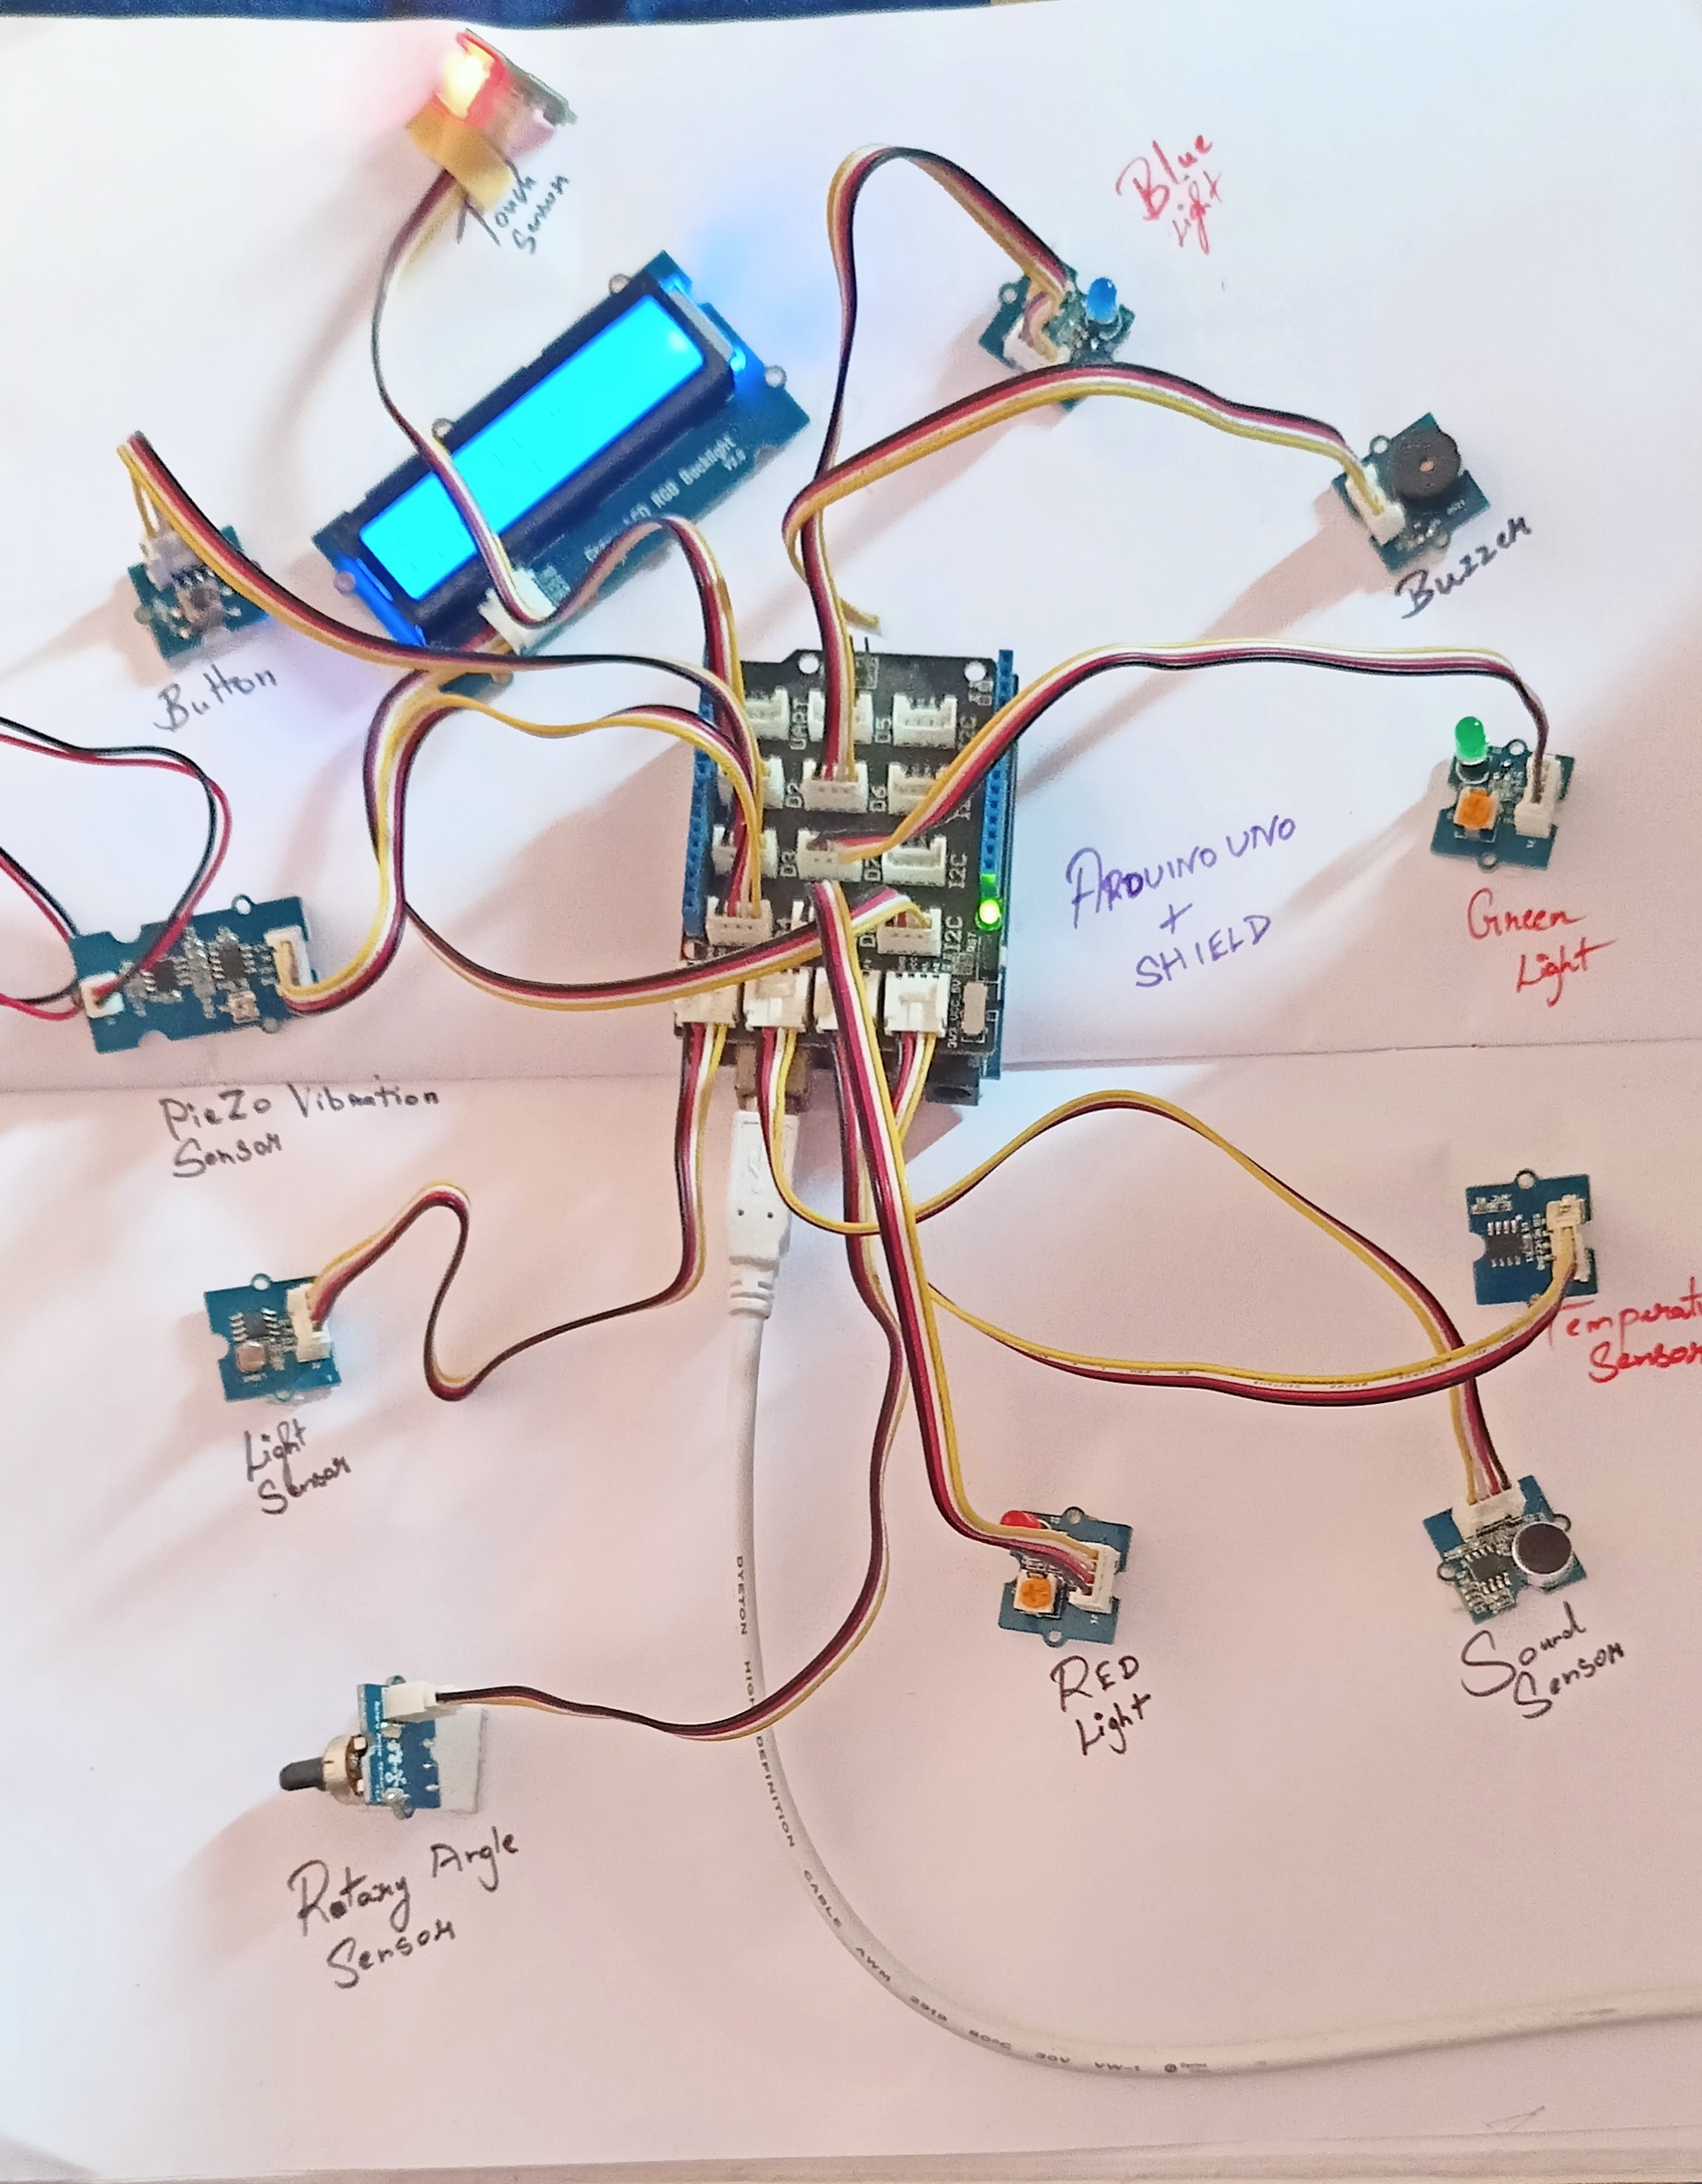 Touch
Sensor
Blue
Light
LCD RGB Backlight
Buzzer
Button
UART
D5
D2
D6
D3
I2C
I2C
ARDUINO UNO
+
SHIELD
Green
Light
PieZo Vibration
Sensor
Temperatu
Sensor
Light
Sensor
RED
Light
Sound
Sensor
Rotary Angle
Sensor
DYETON HIGH DEFINITION CABLE AWM 2919 80°C 30V VW-1